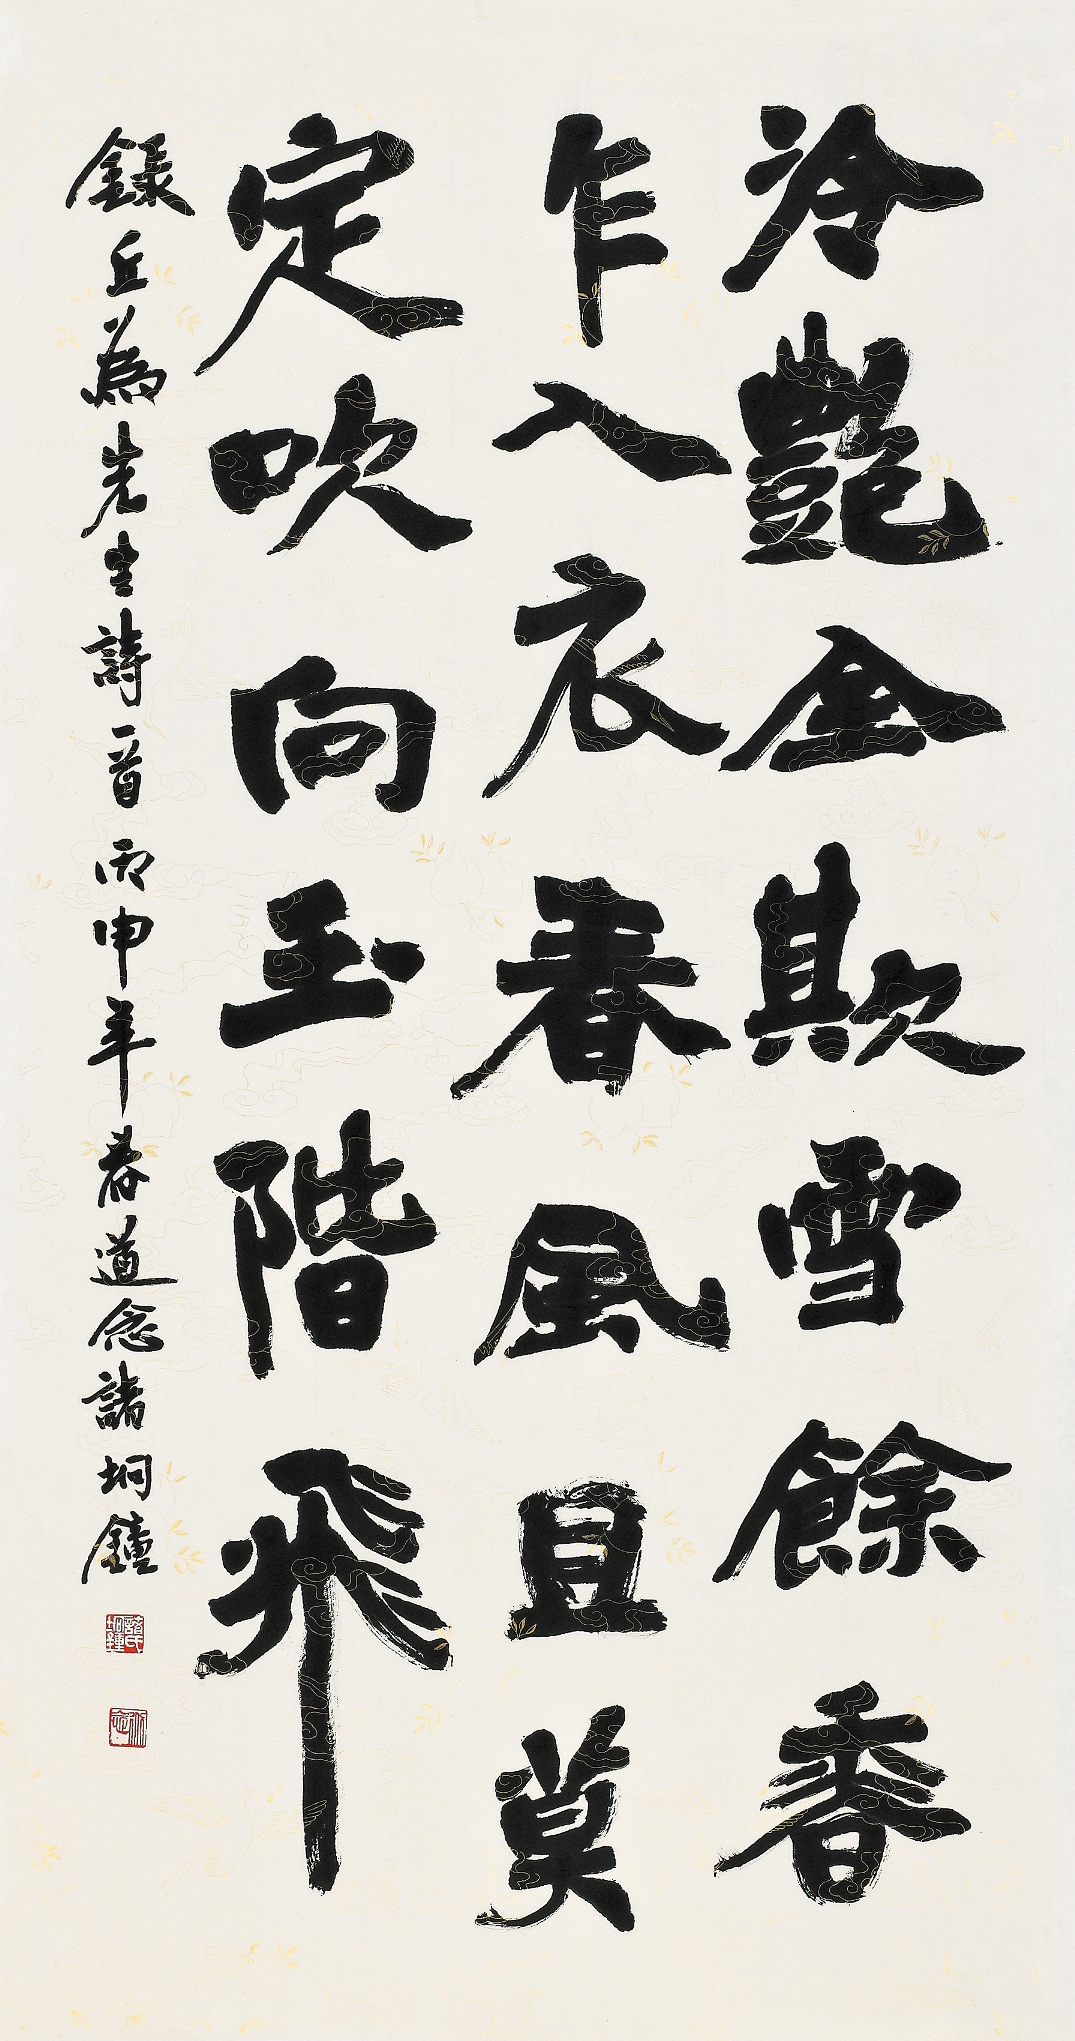 冷豔全欺雪餘香
乍入衣春風且莫
定吹向玉階飛
錄丘為先生詩一首丙申年春道念諸坰鐘